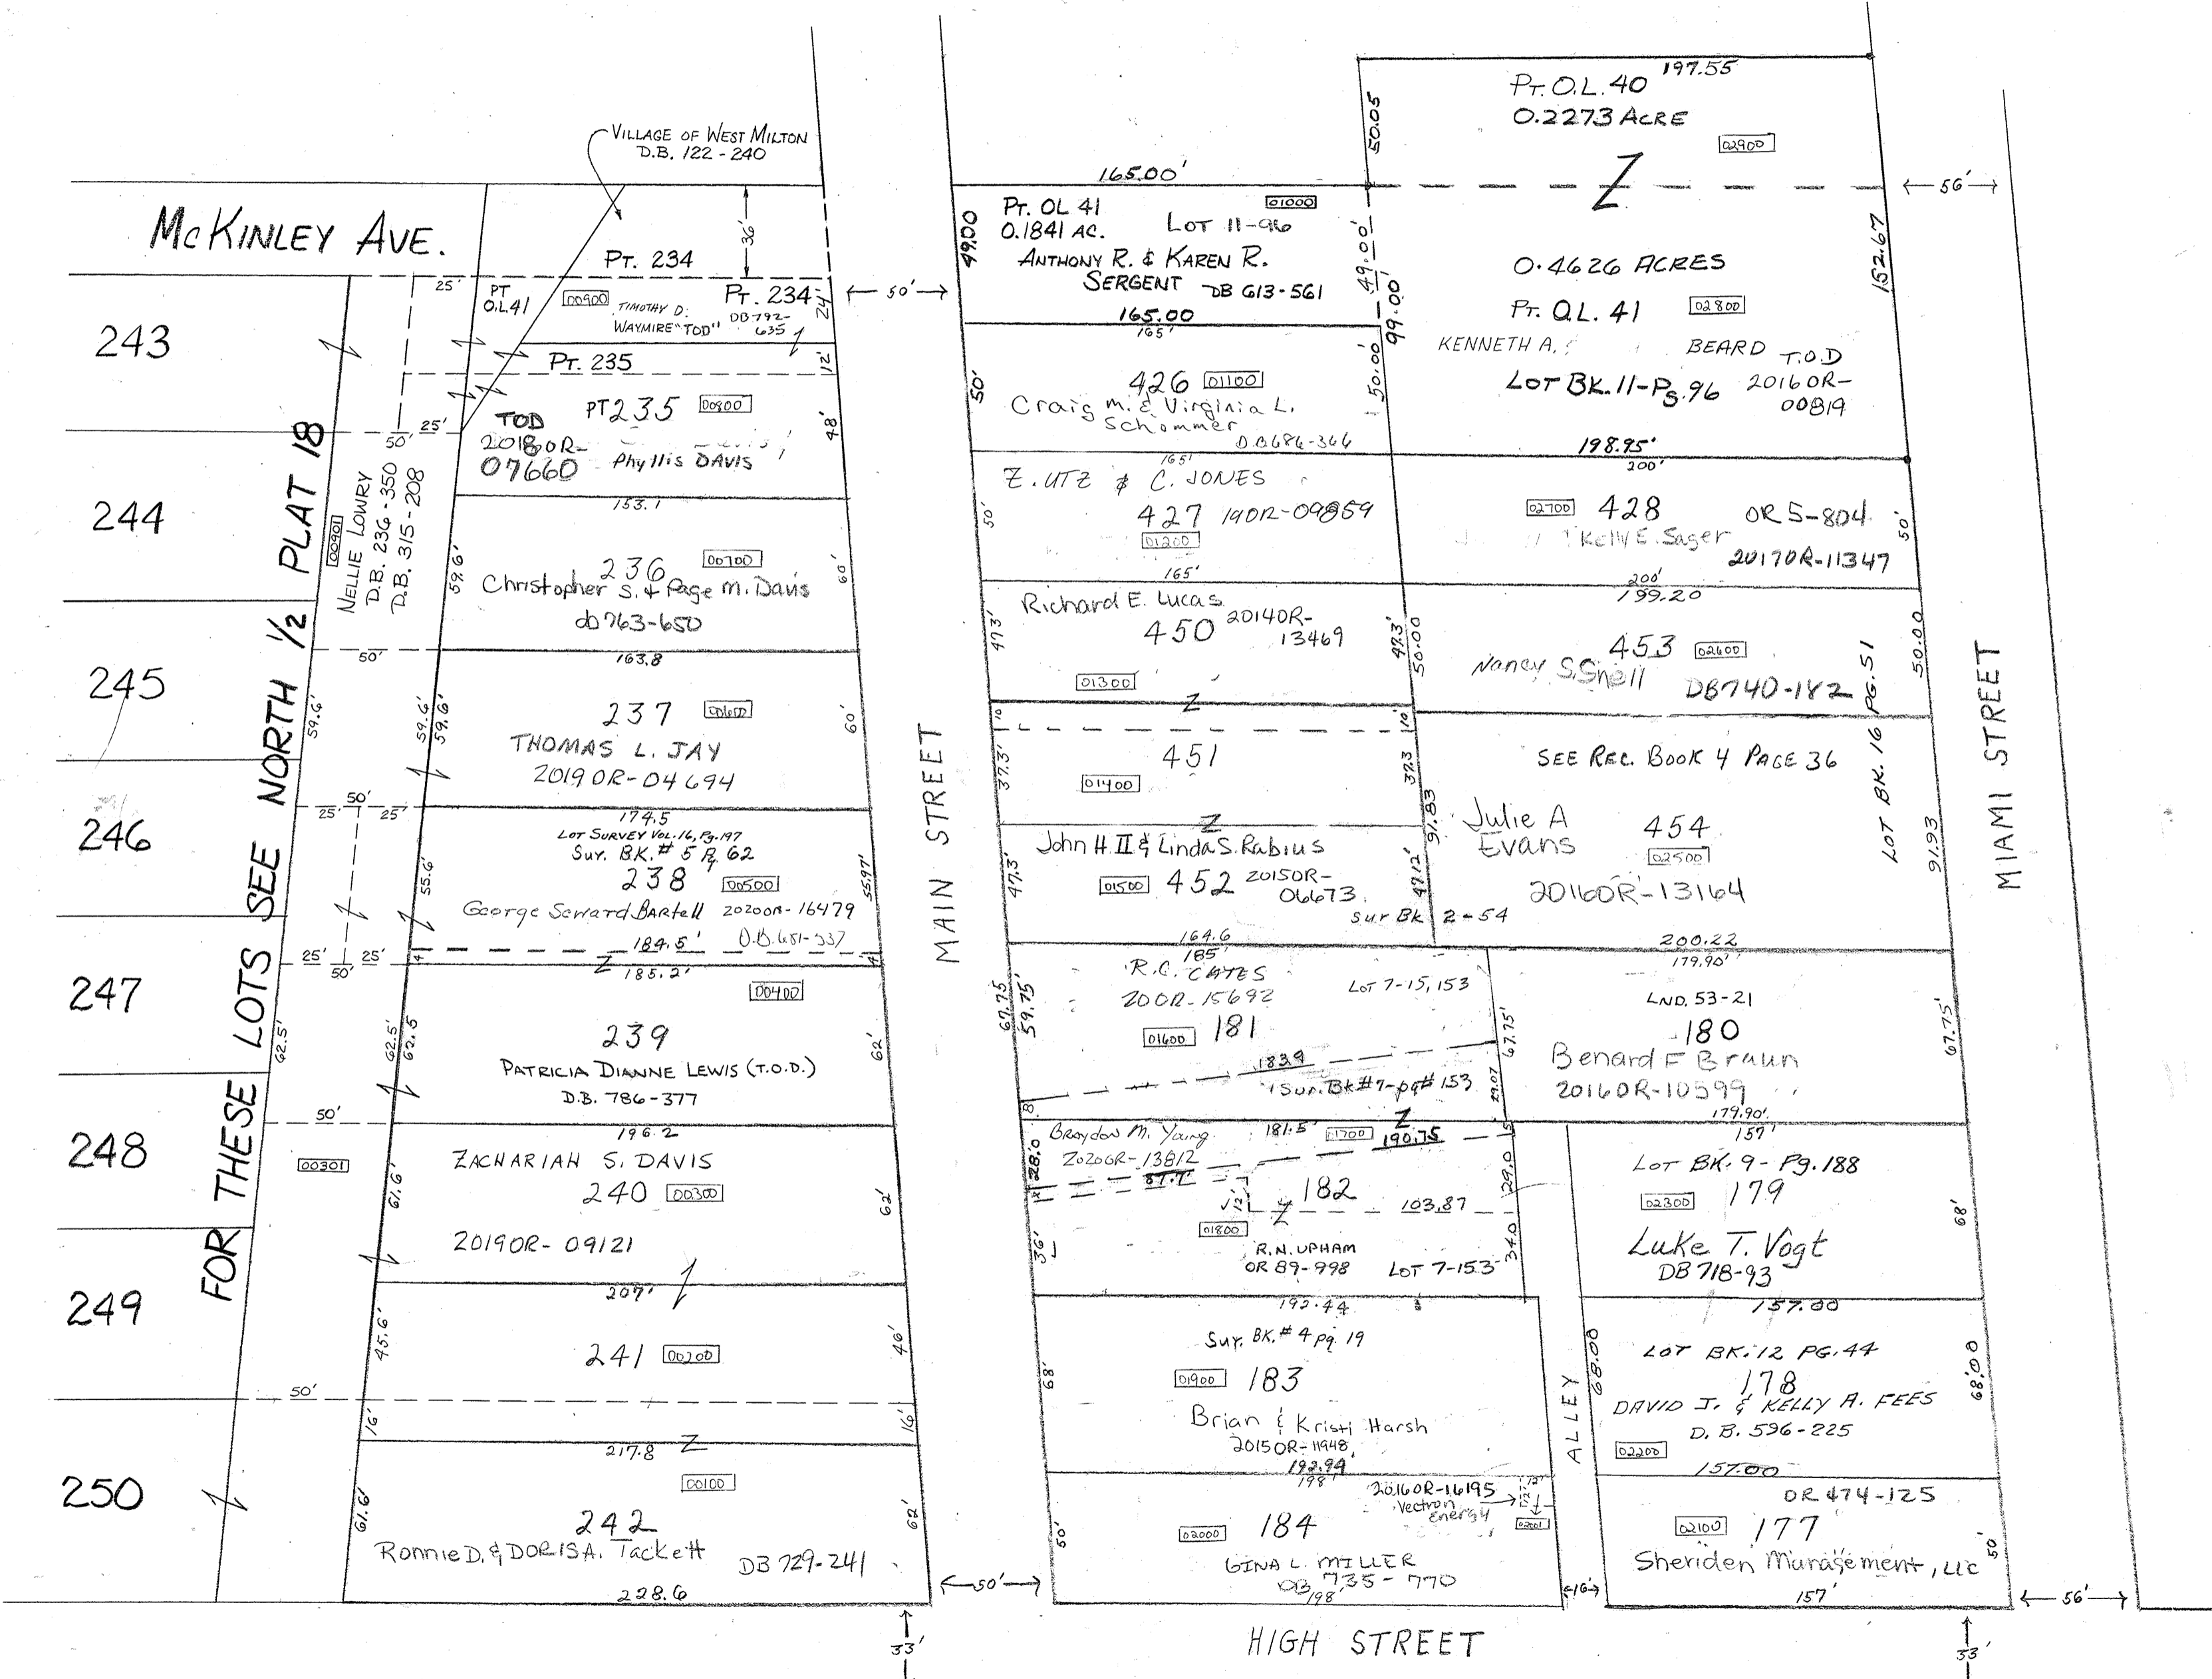 VILLAGE OF WEST MILTON
D.B. 122 - 240
McKINLEY AVE.
36'
PT. 234
25'
PT
O.L41
00900
TIMOTHY D.
WAYMIRE "TOD"
PT. 234
DB 792-
635
24'
← 50' →
PT. 235
12'
243
244
245
246
247
248
249
250
FOR THESE LOTS SEE NORTH 1/2 PLAT 18
00901
NELLIE LOWRY
D.B. 236 - 350
D.B. 315 - 208
50'
25'
TOD
20180R-
07660
PT 235
00800
Phyllis DAVIS
48'
153.1
59.6'
236
00700
Christopher S. & Page M. Davis
db 763-650
60'
50'
163.8
59.6'
59.6'
59.6'
237
00600
THOMAS L. JAY
2019 OR-04694
60'
50'
25'
25'
174.5
LOT SURVEY VOL. 16, Pg. 197
Sur. B.K. # 5 Pg 62
238
00500
55.6'
55.97'
George Seward BARtell
20200R-16479
184.5'
D.B. 651-337
25'
25'
50'
4'
4'
185.2'
00400
239
PATRICIA DIANNE LEWIS (T.O.D.)
D.B. 786-377
62.5'
62.5'
62.5
62'
50'
196.2
00301
ZACHARIAH S. DAVIS
240
00300
20190R- 09121
61.6'
62'
207'
241
00200
45.6'
46'
50'
16'
16'
217.8
00100
242
Ronnie D. & DORIS A. Tackett
DB 729-241
61.6'
62'
228.6
33'
MAIN STREET
← 50' →
165.00'
PT. OL 41
0.1841 AC.
01000
LOT 11-96
ANTHONY R. & KAREN R.
SERGENT
DB 613-561
49.00
49.00'
99.00'
165.00
165'
426
01100
Craig M. & Virginia L.
Schommer
D.B 686-366
50'
50.00'
165'
Z. UTZ & C. JONES
427
190R-09859
01200
50'
165'
Richard E. Lucas
450
20140R-
13469
01300
47.3'
47.3'
50.00
10'
10'
451
01400
37.3'
37.3
91.83
John H. II & Linda S. Rabius
01500
452
20150R-
06673
47.3'
47.12'
Sur Bk 2-54
164.6
185'
R.C. CATES
200R-15692
LOT 7-15, 153
01600
181
67.75
59.75'
67.75'
183.9
Sur. Bk #7-pg# 153
29.07
8'
Braydon M. Young
20200R-13812
181.5'
01700
190.75
5'
28.0
87.7'
12'
182
103.87
29.0
01800
R.N. UPHAM
OR 89-998
LOT 7-153
36'
34.0
192.44
Sur. BK. # 4 pg. 19
01900
183
Brian & Kristi Harsh
20150R-11948
68'
192.94
198'
20160R-16195
Vectron
Energy
02001
12'
02000
184
GINA L. MILLER
DB 735- 770
50'
198'
ALLEY
16'
HIGH STREET
197.55
PT. O.L. 40
0.2273 ACRE
02900
50.05
← 56' →
152.67
0.4626 ACRES
PT. O.L. 41
02800
KENNETH A.
BEARD
T.O.D
LOT BK. 11-Pg. 96
20160R-
00819
198.95'
200'
02700
428
OR 5-804
Kelly E. Sager
20170R-11347
50'
200'
199.20
453
02600
Nancy S. Snell
DB740-182
50.00
LOT BK. 16 PG. 51
SEE REC. BOOK 4 PAGE 36
Julie A
Evans
454
02500
20160R-13164
91.93
200.22
179.90'
LND. 53-21
180
Benard F Braun
20160R-10599
67.75'
179.90'
157'
LOT BK. 9 - Pg. 188
02300
179
Luke T. Vogt
DB 718-93
68'
157.00
LOT BK. 12 PG. 44
178
DAVID J. & KELLY A. FEES
D. B. 596-225
02200
68.00
68.00
157.00
OR 474-125
02100
177
Sheriden Management, LLC
50'
157'
MIAMI STREET
← 56' →
33'